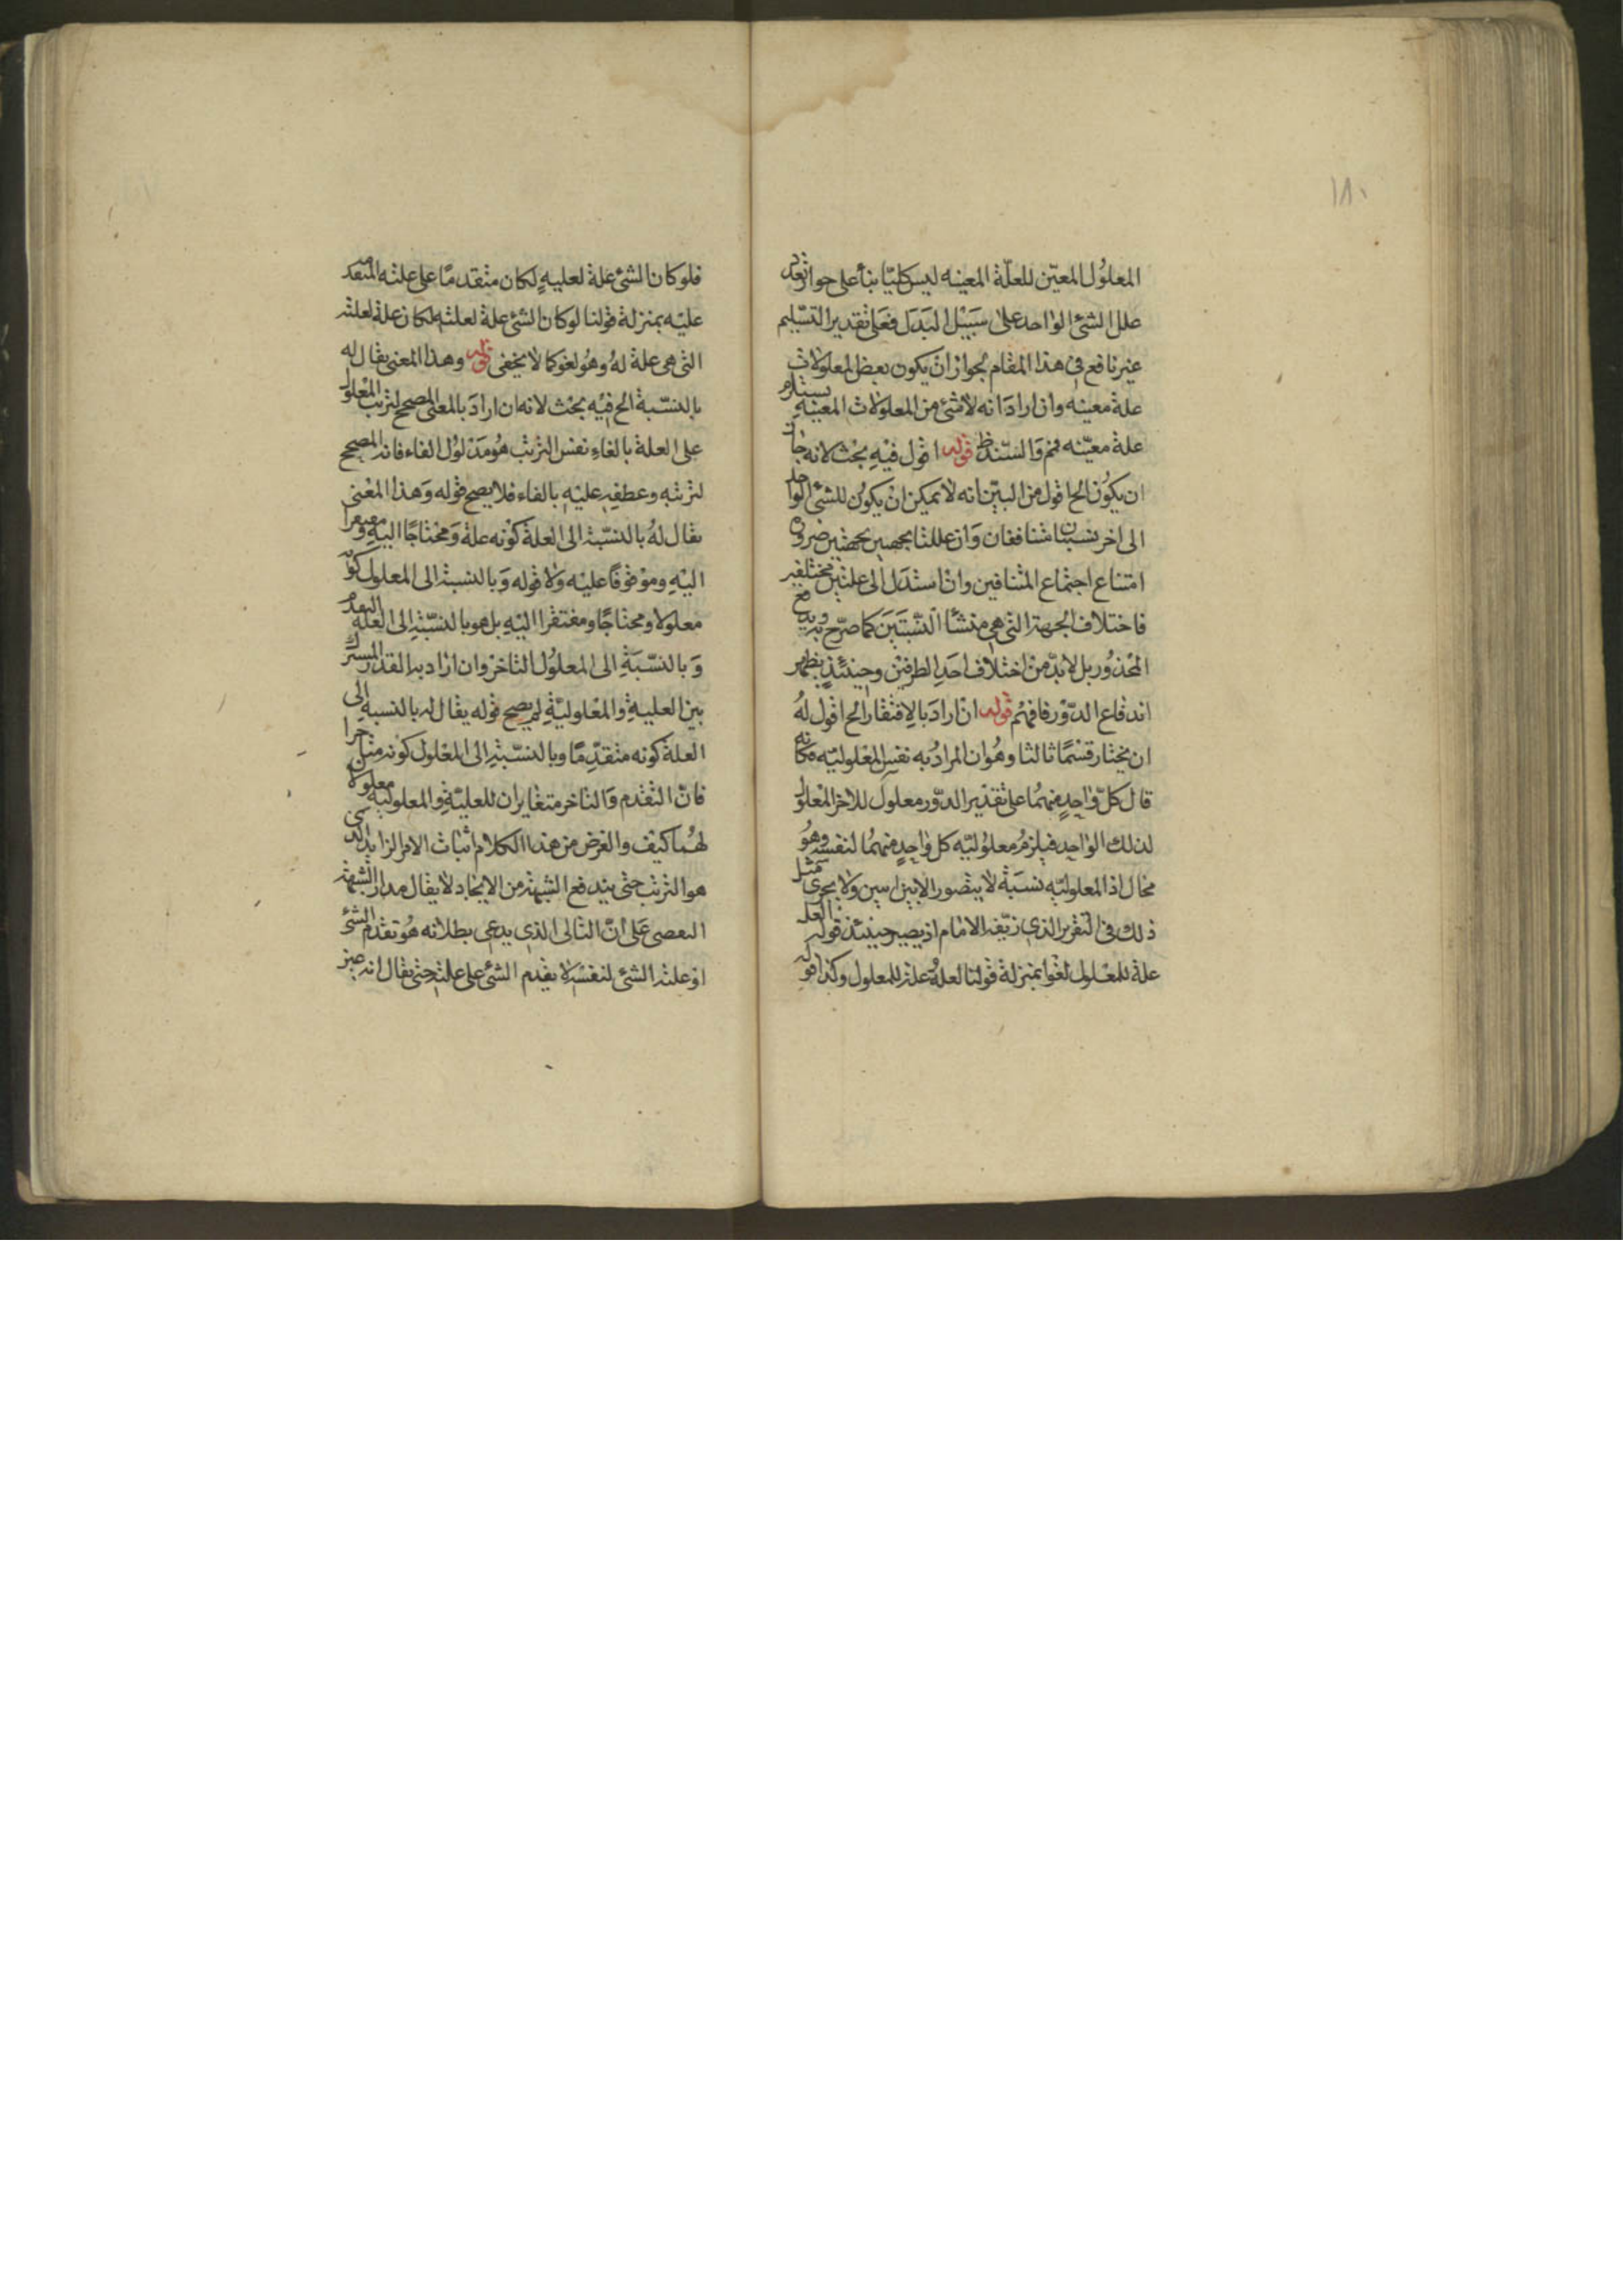 ١٨٠
المعلول المعيّن للعلّة المعينه ليس كليّا بناً على جواز تعدد
علل الشئ الواحد على سبيل البدل فعلى تقدير التسليم
غير نافع فى هذا المقام لجواز ان يكون بعض المعلولات يستلزم
علة معينه وان اراد انه لا شئ من المعلولات المعينه
علة معيّنه فم والسند ظ قوله اقول فيه بحث لانه جاز
ان يكون الخ اقول من البيّن انه لا يمكن ان يكون للشئ الواحد
الى اخر نسبتان متنافتان وان عللتا بجهتين ضرورة
امتناع اجتماع المتنافين وان استدل الى علتين مختلفين
فاختلاف الجهة التى هى منشأ النسبتين كما صرّح به يدفع
المحذور بل لابدّ من اختلاف احد الطرفين وحينئذٍ يظهر
اندفاع الدّور فافهم قوله ان اراد بالافتقار الخ اقول له
ان يختار قسمًا ثالثا وهو ان المراد به نفس المعلوليّه فكانه
قال كلّ واحدٍ منهما على تقدير الدّور معلول للاخر المعلول
لذلك الواحد فيلزم معلوليّه كل واحدٍ منهما لنفسه وهو
محال اذ المعلوليّه نسبة لا يتصور الا بين اثنين ولا يجرى مثل
ذلك فى التقرير الذى زيّفه الامام اذ يصير حينئذ قوله العلة
علة للمعلول لغوا بمنزلة قولنا العلة علة للمعلول وكذا قوله
فلو كان الشئ علة لعليهٍ لكان متقدمًا على علته المتقدمه
عليه بمنزلة قولنا لو كان الشئ علة لعلته لكان علة لعلته
التى هى علة له وهو لغو كما لا يخفى قوله وهذا المعنى يقال له
بالنسبة الخ فيه بحث لانه ان اراد بالمعنى المصحح لترتب المعلول
على العلة بالفاء نفس الترتب هو مدلول الفاء فانه المصحح
لترتبه وعطفه عليه بالفاء فلا يصح قوله وهذا المعنى
يقال له بالنسبة الى العلة كونه علة ومحتاجًا اليه ومفتقرا
اليه وموقوفًا عليه ولا قوله وبالنسبة الى المعلول كونه
معلولا ومحتاجًا ومفتقرا اليه بل هو بالنسبة الى العلة التقدم
وبالنسبة الى المعلول التاخر وان اراد به القدر المشترك
بين العلية والمعلوليّة لم يصح قوله يقال له بالنسبة الى
العلة كونه متقدّمًا وبالنسبة الى المعلول كونه متاخرا
فانّ التقدم والتاخر متغايران للعليّة والمعلوليّة معلولا
لهما كيف والغرض من هذا الكلام اثبات الامر الزايد الذى
هو الترتب حتى يندفع الشبهة من الايجاد لا يقال مدار الشبهة
على انّ التالى الذى يدعى بطلانه هو تقدم الشئ
او علته الشئ لنفسه لا تقدم الشئ على علته حتى يقال انه عين